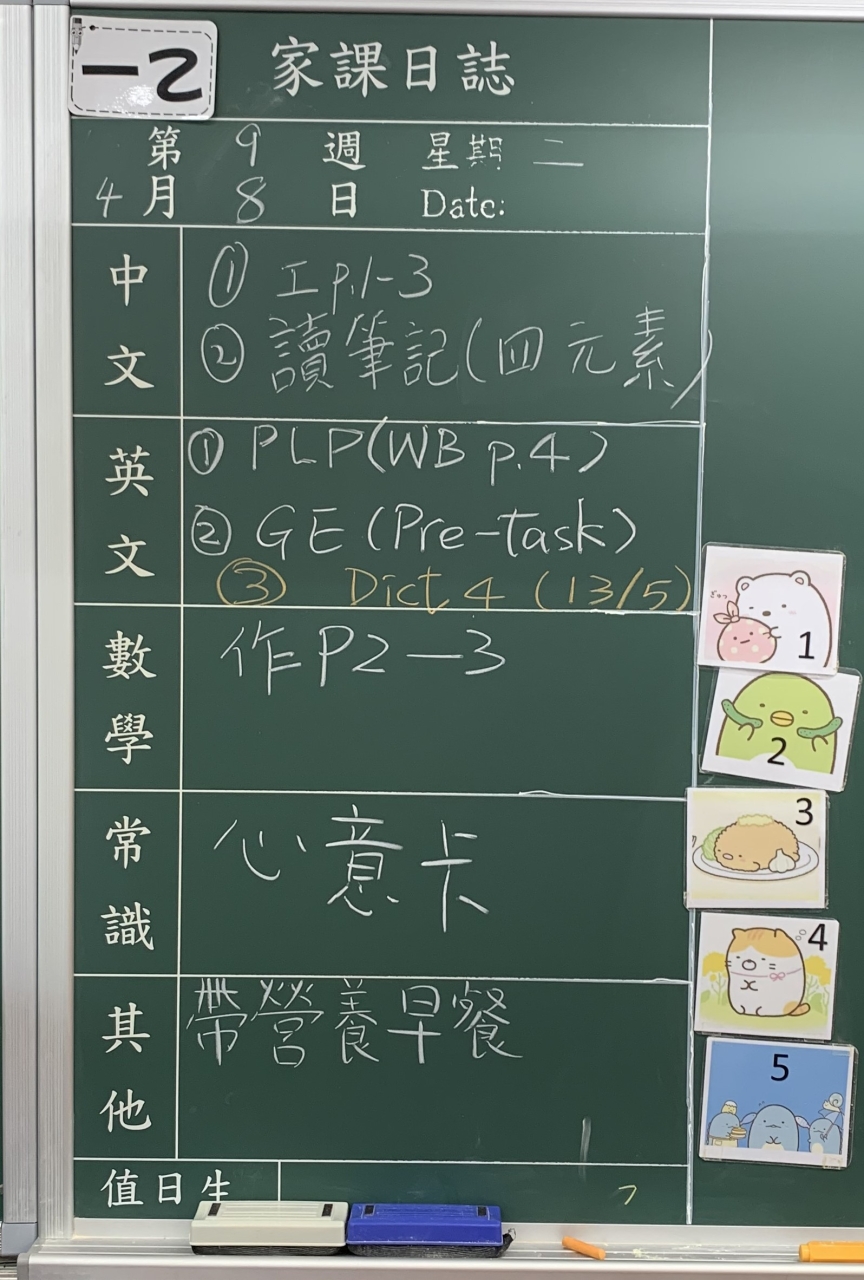 一乙
家課日誌
第 9 週 星期 二
4 月 8 日 Date:
中文
① 工p.1-3
② 讀筆記(四元素)
英文
① PLP(WB p.4)
② GE (Pre-task)
③ Dict 4 (13/5)
數學
作P2-3
常識
心意卡
其他
帶營養早餐
值日生
1
2
3
4
5